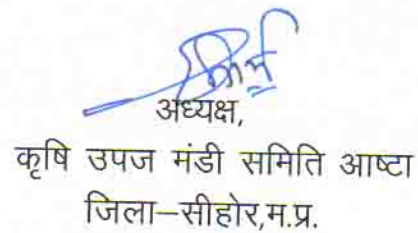 अध्यक्ष,
कृषि उपज मंडी समिति आष्टा
जिला–सीहोर,म.प्र.